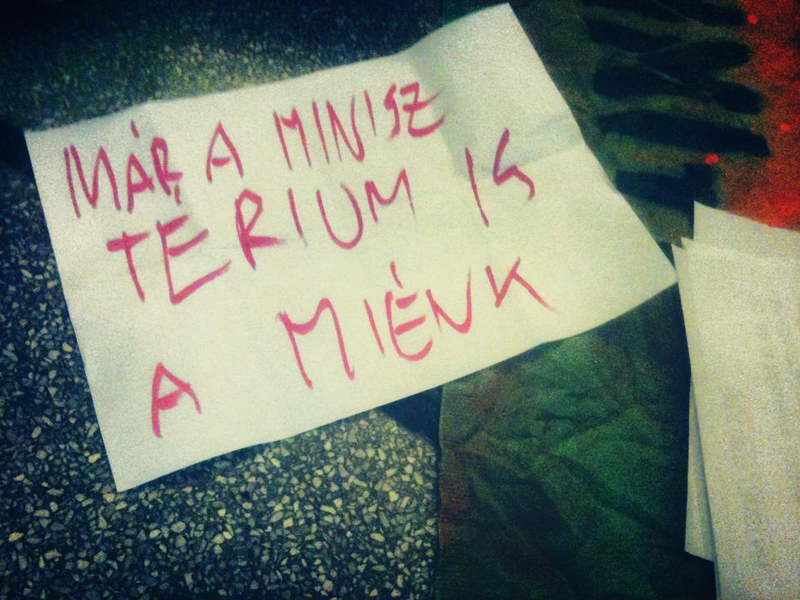 MÁR A MINISZ
TÉRIUM IS
A MIÉNK